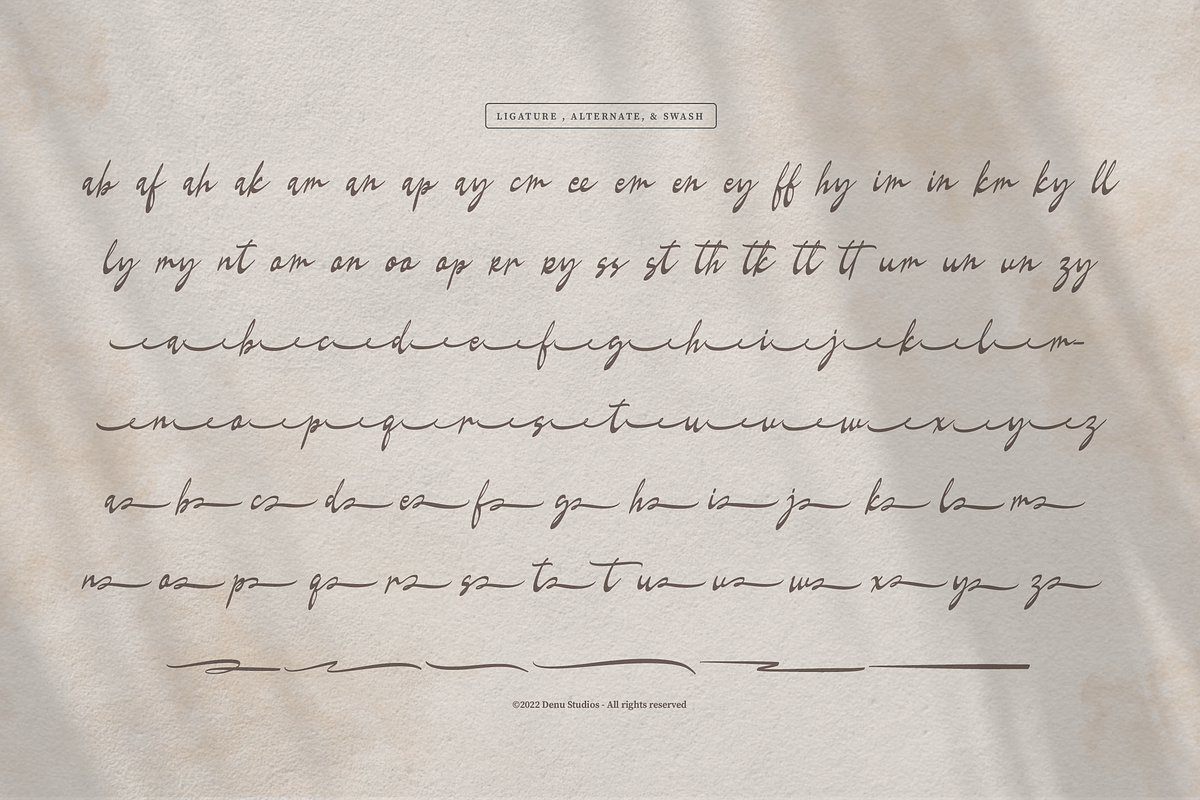 LIGATURE , ALTERNATE, & SWASH
ab af ah ak am an ap ay cm ee em en ey ff hy im in km ky ll
ly my nt om on oo op rr ry ss st th tk tl tt um un vn zy
a b c d e f g h i j k l m
n o p q r s t u v w x y z
a b c d e f g h i j k l m
n o p q r s t t u v w x y z
©2022 Denu Studios - All rights reserved